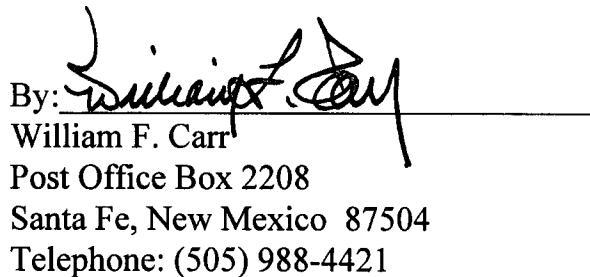 By: William F. Carr
William F. Carr
Post Office Box 2208
Santa Fe, New Mexico 87504
Telephone: (505) 988-4421